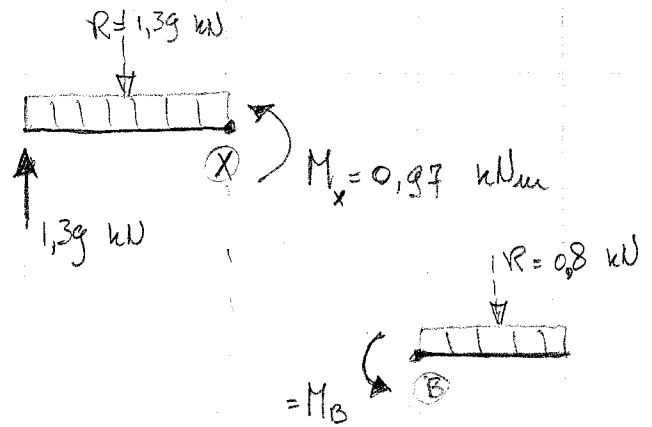 R=1,39 kN
X
Mx=0,97 kNm
1,39 kN
R=0,8 kN
=MB
B